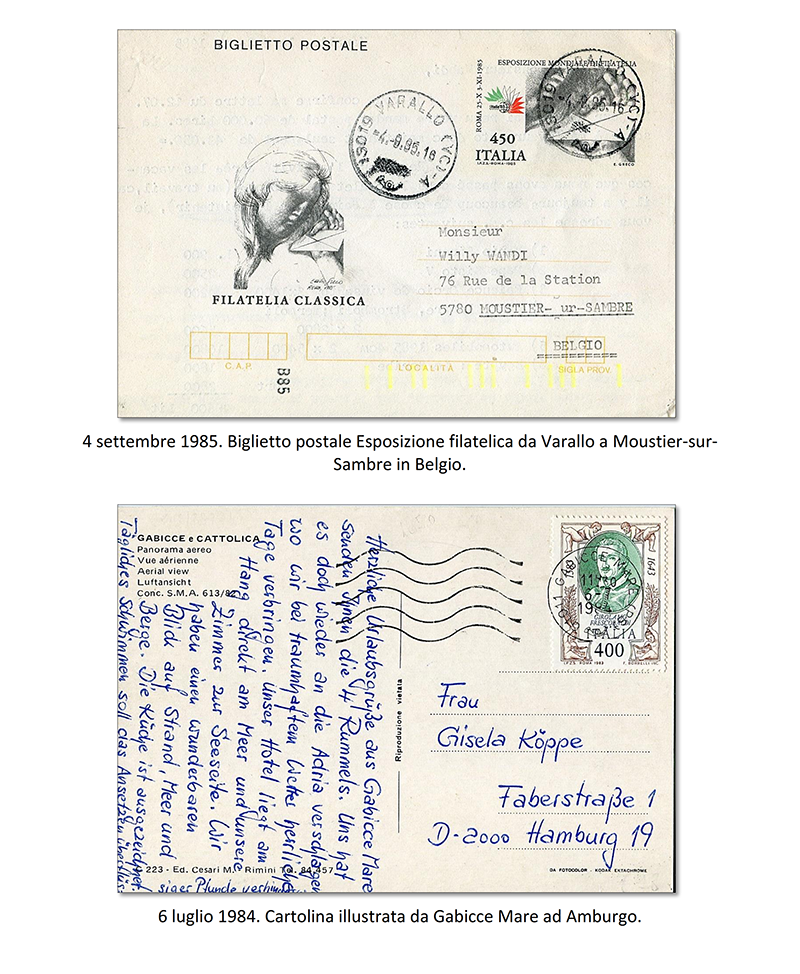 BIGLIETTO POSTALE
ROMA 25-X 3-XI-1985
ESPOSIZIONE MONDIALE DI FILATELIA
450
ITALIA
I.P.Z.S.-ROMA-1985
E. GRECO
13019 VARALLO (VC)-A
-4.-9.85.16
13019 VARALLO (VC)-A
-4.-9.85.16
FILATELIA CLASSICA
Monsieur
Willy WANDI
76 Rue de la Station
5780 MOUSTIER- ur-SAMBRE
BELGIO
C.A.P.
LOCALITÀ
SIGLA PROV.
B85
4 settembre 1985. Biglietto postale Esposizione filatelica da Varallo a Moustier-sur-
Sambre in Belgio.
GABICCE e CATTOLICA
Panorama aereo
Vue aérienne
Aerial view
Luftansicht
Conc. S.M.A. 613/82
Herzliche Urlaubsgrüße aus Gabicce Mare
senden Ihnen die 4 Rummels. Uns hat
es doch wieder an die Adria verschlagen
wo wir bei traumhaftem Wetter herrliche
Tage verbringen. Unser Hotel liegt am
Hang direkt am Meer und unsere
Zimmer zur Seeseite. Wir
haben einen wunderbaren
Blick auf Strand, Meer und
Berge. Die Küche ist ausgezeichnet
Tägliches Schwimmen soll das Ansetzen überflüs-
siger Pfunde
223 - Ed. Cesari M. - Rimini Tel. 84.457
Riproduzione vietata
1643
GIROLAMO
FRESCOBALDI
ITALIA
400
I.P.Z.S. ROMA 1983
F. BORRELLI INC.
GABICCE MARE
6-7
1984
Frau
Gisela Köppe
Faberstraße 1
D-2000 Hamburg 19
DA FOTOCOLOR - KODAK EKTACHROME
6 luglio 1984. Cartolina illustrata da Gabicce Mare ad Amburgo.